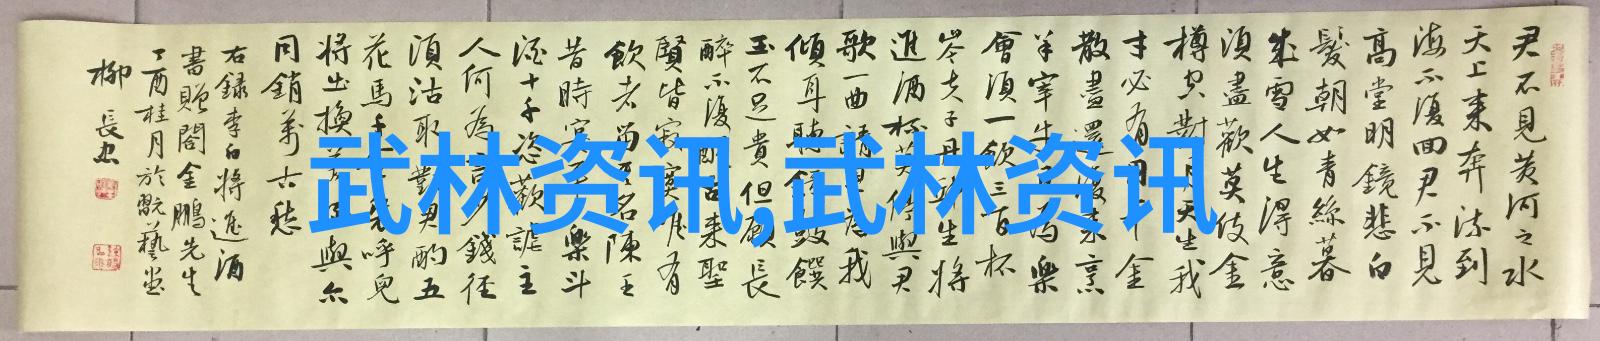 君不見黃河之水
天上來奔流到
海不復回君不見
高堂明鏡悲白
髮朝如青絲暮
成雪人生得意
須盡歡莫使金
樽空對月天生我
才必有用千金
散盡還復來烹
羊宰牛且為樂
會須一飲三百杯
岑夫子丹邱生將
進酒杯莫停與君
歌一曲請君為我
傾耳聽鐘鼓饌
玉不足貴但願長
醉不復醒古來聖
賢皆寂寞惟有
飲者留其名陳王
昔時宴平樂斗
酒十千恣歡謔主
人何為言少錢徑
須沽取對君酌五
花馬千金裘呼兒
將出換美酒與尔
同銷萬古愁
右録李白將進酒
書贈閤金鵬先生
丁酉桂月於翫藝堂
柳長忠
武林资讯,武林资讯